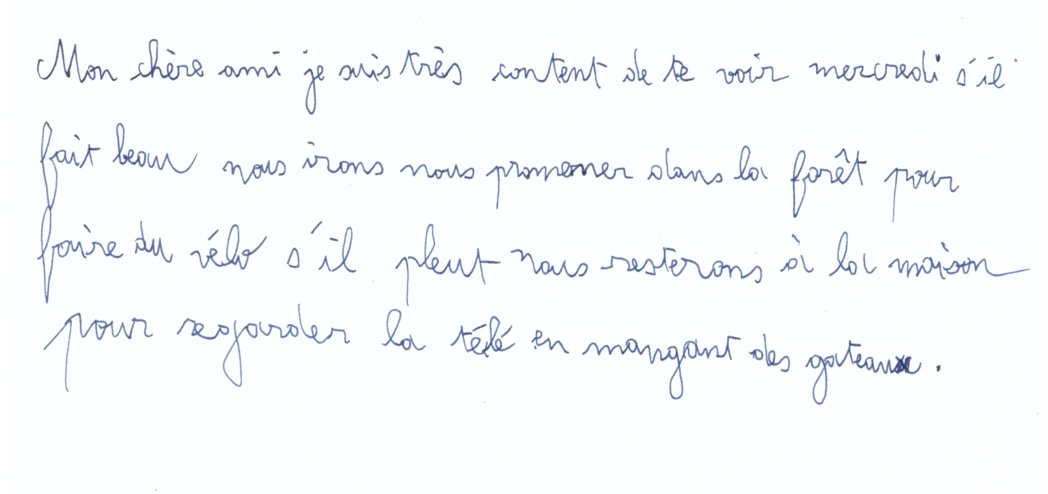 Mon chère ami je suis très content de te voir mercredi s'il
fait beau nous irons nous promener dans la forêt pour
faire du vélo s'il pleut nous resterons à la maison
pour regarder la télé en mangant des gateaux.